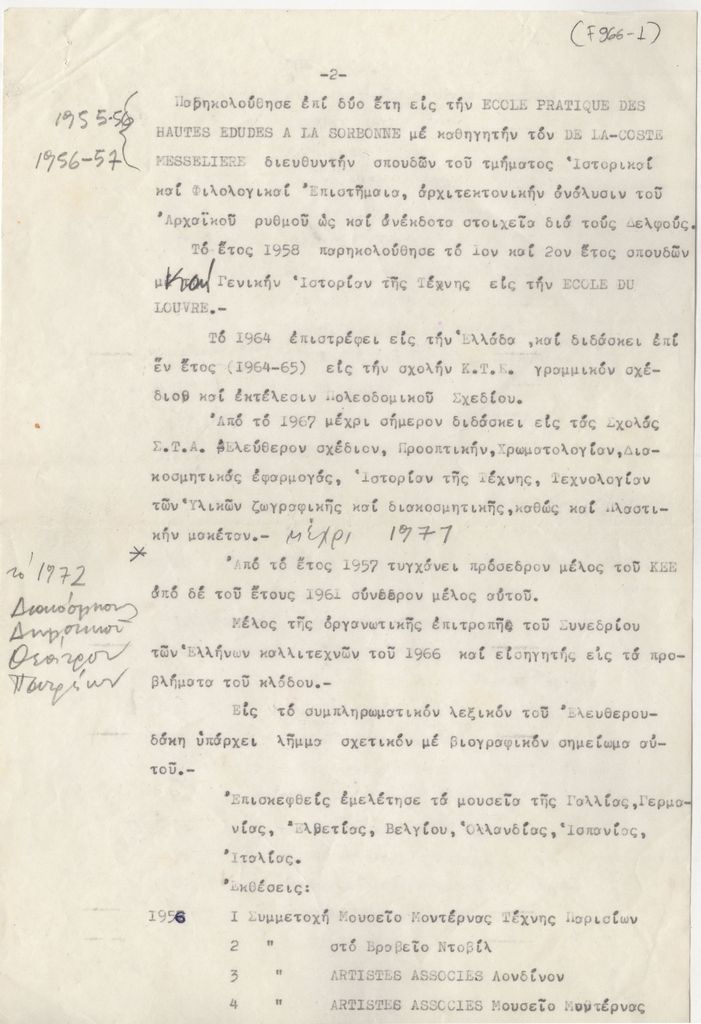 (F966-1)
-2-
1955-56
1956-57
Παρηκολούθησε ἐπί δύο ἔτη εἰς τήν ECOLE PRATIQUE DES
HAUTES EDUDES A LA SORBONNE μέ καθηγητήν τόν DE LA-COSTE
MESSELIERE διευθυντήν σπουδῶν τοῦ τμήματος Ἱστορικαί
καί Φιλολογικαί Ἐπιστῆμαια, ἀρχιτεκτονικήν ἀνάλυσιν τοῦ
Ἀρχαϊκοῦ ρυθμοῦ ὡς καί ἀνέκδοτα στοιχεῖα διά τούς Δελφούς.
Τό ἔτος 1958 παρηκολούθησε τό 1ον καί 2ον ἔτος σπουδῶν
καί Γενικήν Ἱστορίαν τῆς Τέχνης εἰς τήν ECOLE DU
LOUVRE.-
Τό 1964 ἐπιστρέφει εἰς τήν Ἑλλάδα ,καί διδάσκει ἐπί
ἕν ἔτος (1964-65) εἰς τήν σχολήν Κ.Τ.Ε. γραμμικόν σχέ-
διοθ καί ἐκτέλεσιν Πολεοδομικοῦ Σχεδίου.
Ἀπό τό 1967 μέχρι σήμερον διδάσκει εἰς τάς Σχολάς
Σ.Τ.Α. Ἐλεύθερον σχέδιον, Προοπτικήν,Χρωματολογίαν,Δια-
κοσμητικάς ἐφαρμογάς, Ἱστορίαν τῆς Τέχνης, Τεχνολογίαν
τῶν Ὑλικῶν ζωγραφικῆς καί διακοσμητικῆς,καθώς καί Πλαστι-
κήν μακέταν.- μέχρι 1977
*
τό 1972
Διακόσμησις
Δημοτικοῦ
Θεάτρου
Πατρέων
Ἀπό τό ἔτος 1957 τυγχάνει πρόσεδρον μέλος τοῦ ΚΕΕ
ἀπό δέ τοῦ ἔτους 1961 σύνεδρον μέλος αὐτοῦ.
Μέλος τῆς ὀργανωτικῆς ἐπιτροπῆς τοῦ Συνεδρίου
τῶν Ἑλλήνων καλλιτεχνῶν τοῦ 1966 καί εἰσηγητής εἰς τά προ-
βλήματα τοῦ κλάδου.-
Εἰς τό συμπληρωματικόν λεξικόν τοῦ Ἐλευθερου-
δάκη ὑπάρχει λῆμμα σχετικόν μέ βιογραφικόν σημείωμα αὐ-
τοῦ.-
Ἐπισκεφθείς ἐμελέτησε τά μουσεῖα τῆς Γαλλίας,Γερμα-
νίας, Ἑλβετίας, Βελγίου, Ὁλλανδίας, Ἱσπανίας,
Ἰταλίας.
Ἐκθέσεις:
1956 I Συμμετοχή Μουσεῖο Μοντέρνας Τέχνης Παρισίων
2 " στό Βραβεῖο Ντοβίλ
3 " ARTISTES ASSOCIES Λονδίνον
4 " ARTISTES ASSOCIES Μουσεῖο Μοντέρνας